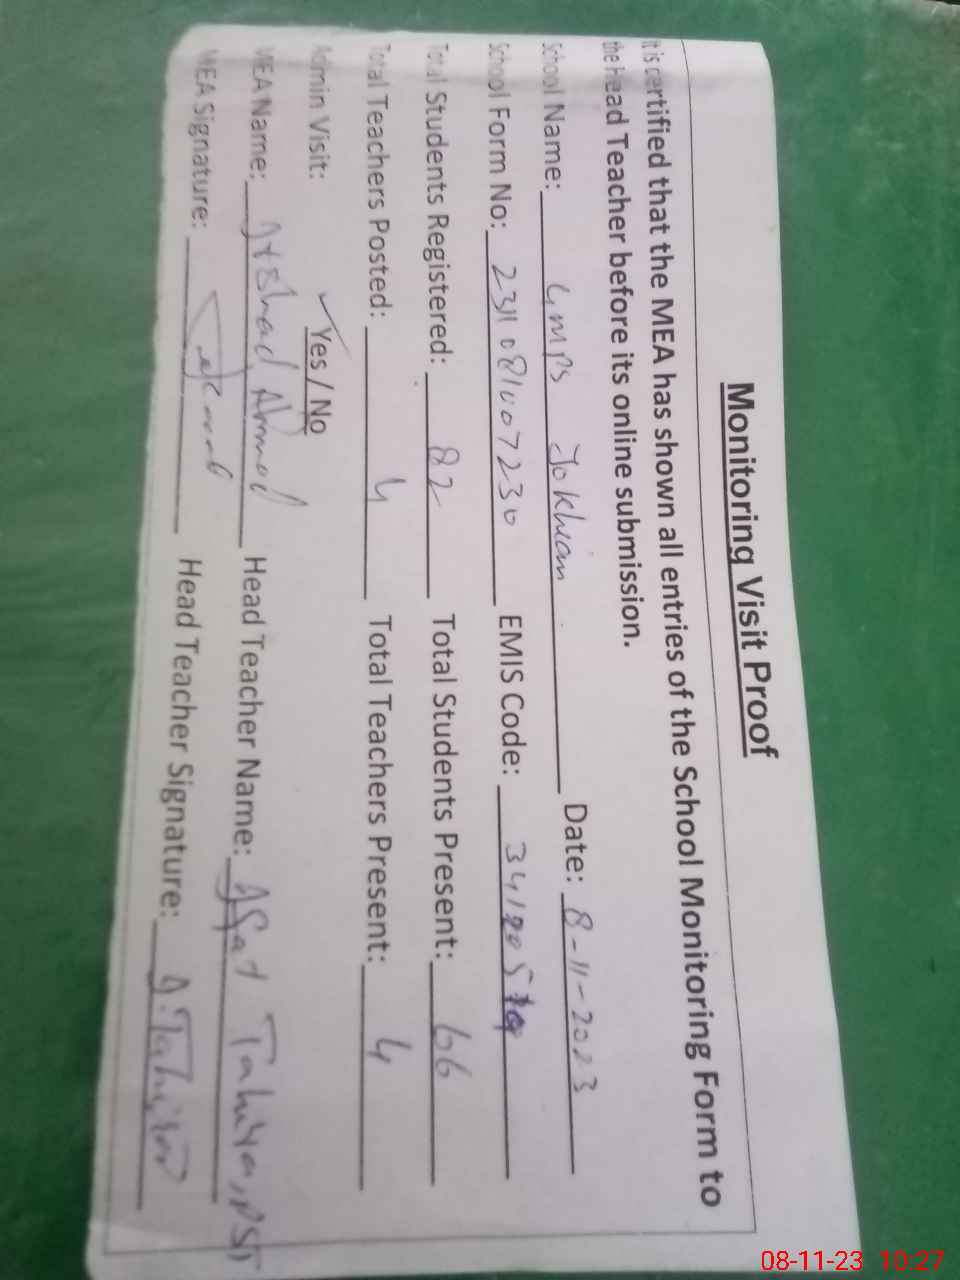 Monitoring Visit Proof
It is certified that the MEA has shown all entries of the School Monitoring Form to
the Head Teacher before its online submission.
School Name: GMPS Jokhian Date: 8-11-2023
School Form No: 2311081007230 EMIS Code:
Total Students Registered: 82 Total Students Present: 66
Total Teachers Posted: 4 Total Teachers Present: 4
Admin Visit: Yes / No
MEA Name: Arshad Ahmad Head Teacher Name: Asad Tahira, PST
MEA Signature: Head Teacher Signature: A.Tahira
08-11-23 10:27